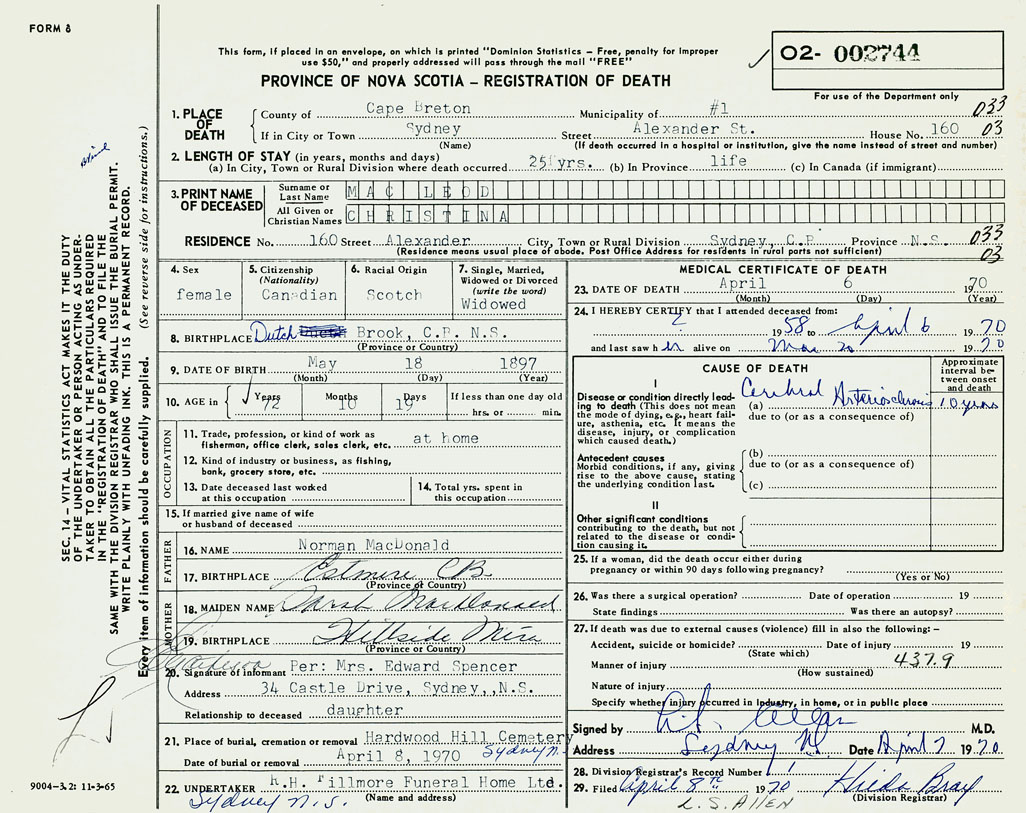 FORM 8
This form, if placed in an envelope, on which is printed "Dominion Statistics – Free, penalty for improper
use $50," and properly addressed will pass through the mail "FREE"
PROVINCE OF NOVA SCOTIA – REGISTRATION OF DEATH
02- 002744
For use of the Department only
1. PLACE OF DEATH
County of Cape Breton Municipality of #1 033
If in City or Town Sydney Street Alexander St. House No. 160 03
(Name) (If death occurred in a hospital or institution, give the name instead of street and number)
2. LENGTH OF STAY (in years, months and days)
(a) In City, Town or Rural Division where death occurred 25 yrs. (b) In Province life (c) In Canada (if immigrant)
3. PRINT NAME OF DECEASED
Surname or Last Name MAC LEOD
All Given or Christian Names CHRISTINA
RESIDENCE No. 160 Street Alexander City, Town or Rural Division Sydney, C.B. Province N.S. 033
(Residence means usual place of abode. Post Office Address for residents in rural parts not sufficient) 03
4. Sex
female
5. Citizenship
(Nationality)
Canadian
6. Racial Origin
Scotch
7. Single, Married, Widowed or Divorced
(write the word)
Widowed
8. BIRTHPLACE Dutch Brook, C.B. N.S.
(Province or Country)
9. DATE OF BIRTH May 18 1897
(Month) (Day) (Year)
10. AGE in Years 72 Months 10 Days 19
If less than one day old
hrs. or min.
OCCUPATION
11. Trade, profession, or kind of work as
fisherman, office clerk, sales clerk, etc. at home
12. Kind of industry or business, as fishing,
bank, grocery store, etc.
13. Date deceased last worked
at this occupation
14. Total yrs. spent in
this occupation
15. If married give name of wife
or husband of deceased
FATHER
16. NAME Norman MacDonald
17. BIRTHPLACE Estmere CB.
(Province or Country)
MOTHER
18. MAIDEN NAME Sarah MacDonald
19. BIRTHPLACE Hillside Mira
(Province or Country)
20. Signature of informant Per: Mrs. Edward Spencer
Address 34 Castle Drive, Sydney,,N.S.
Relationship to deceased daughter
21. Place of burial, cremation or removal Hardwood Hill Cemetery
Date of burial or removal April 8, 1970 Sydney N.
22. UNDERTAKER R.H. Fillmore Funeral Home Ltd.
Sydney N.S. (Name and address)
MEDICAL CERTIFICATE OF DEATH
23. DATE OF DEATH April 6 1970
(Month) (Day) (Year)
24. I HEREBY CERTIFY that I attended deceased from:
1958 to April 6 1970
and last saw her alive on Mar 20 1970
CAUSE OF DEATH
Approximate interval between onset and death
I
Disease or condition directly leading to death (This does not mean the mode of dying, e.g., heart failure, asthenia, etc. It means the disease, injury, or complication which caused death.)
(a) Cerebral Arteriosclerosis 10 years
due to (or as a consequence of)
Antecedent causes
Morbid conditions, if any, giving rise to the above cause, stating the underlying condition last.
(b)
due to (or as a consequence of)
(c)
II
Other significant conditions
contributing to the death, but not related to the disease or condition causing it.
25. If a woman, did the death occur either during
pregnancy or within 90 days following pregnancy?
(Yes or No)
26. Was there a surgical operation? Date of operation 19
State findings Was there an autopsy?
27. If death was due to external causes (violence) fill in also the following: –
Accident, suicide or homicide? Date of injury 19
(State which)
Manner of injury 437.9
(How sustained)
Nature of injury
Specify whether injury occurred in industry, in home, or in public place
Signed by M.D.
Address Sydney Date April 7 1970
28. Division Registrar's Record Number
29. Filed April 8th 1970 Hilda Bray
(Division Registrar)
L.S. ALLEN
SEC. 14 – VITAL STATISTICS ACT MAKES IT THE DUTY
OF THE UNDERTAKER OR PERSON ACTING AS UNDER-
TAKER TO OBTAIN ALL THE PARTICULARS REQUIRED
IN THE "REGISTRATION OF DEATH" AND TO FILE THE
SAME WITH THE DIVISION REGISTRAR WHO SHALL ISSUE THE BURIAL PERMIT.
WRITE PLAINLY WITH UNFADING INK. THIS IS A PERMANENT RECORD.
Every item of information should be carefully supplied. (See reverse side for instructions.)
9004-3.2: 11-3-65